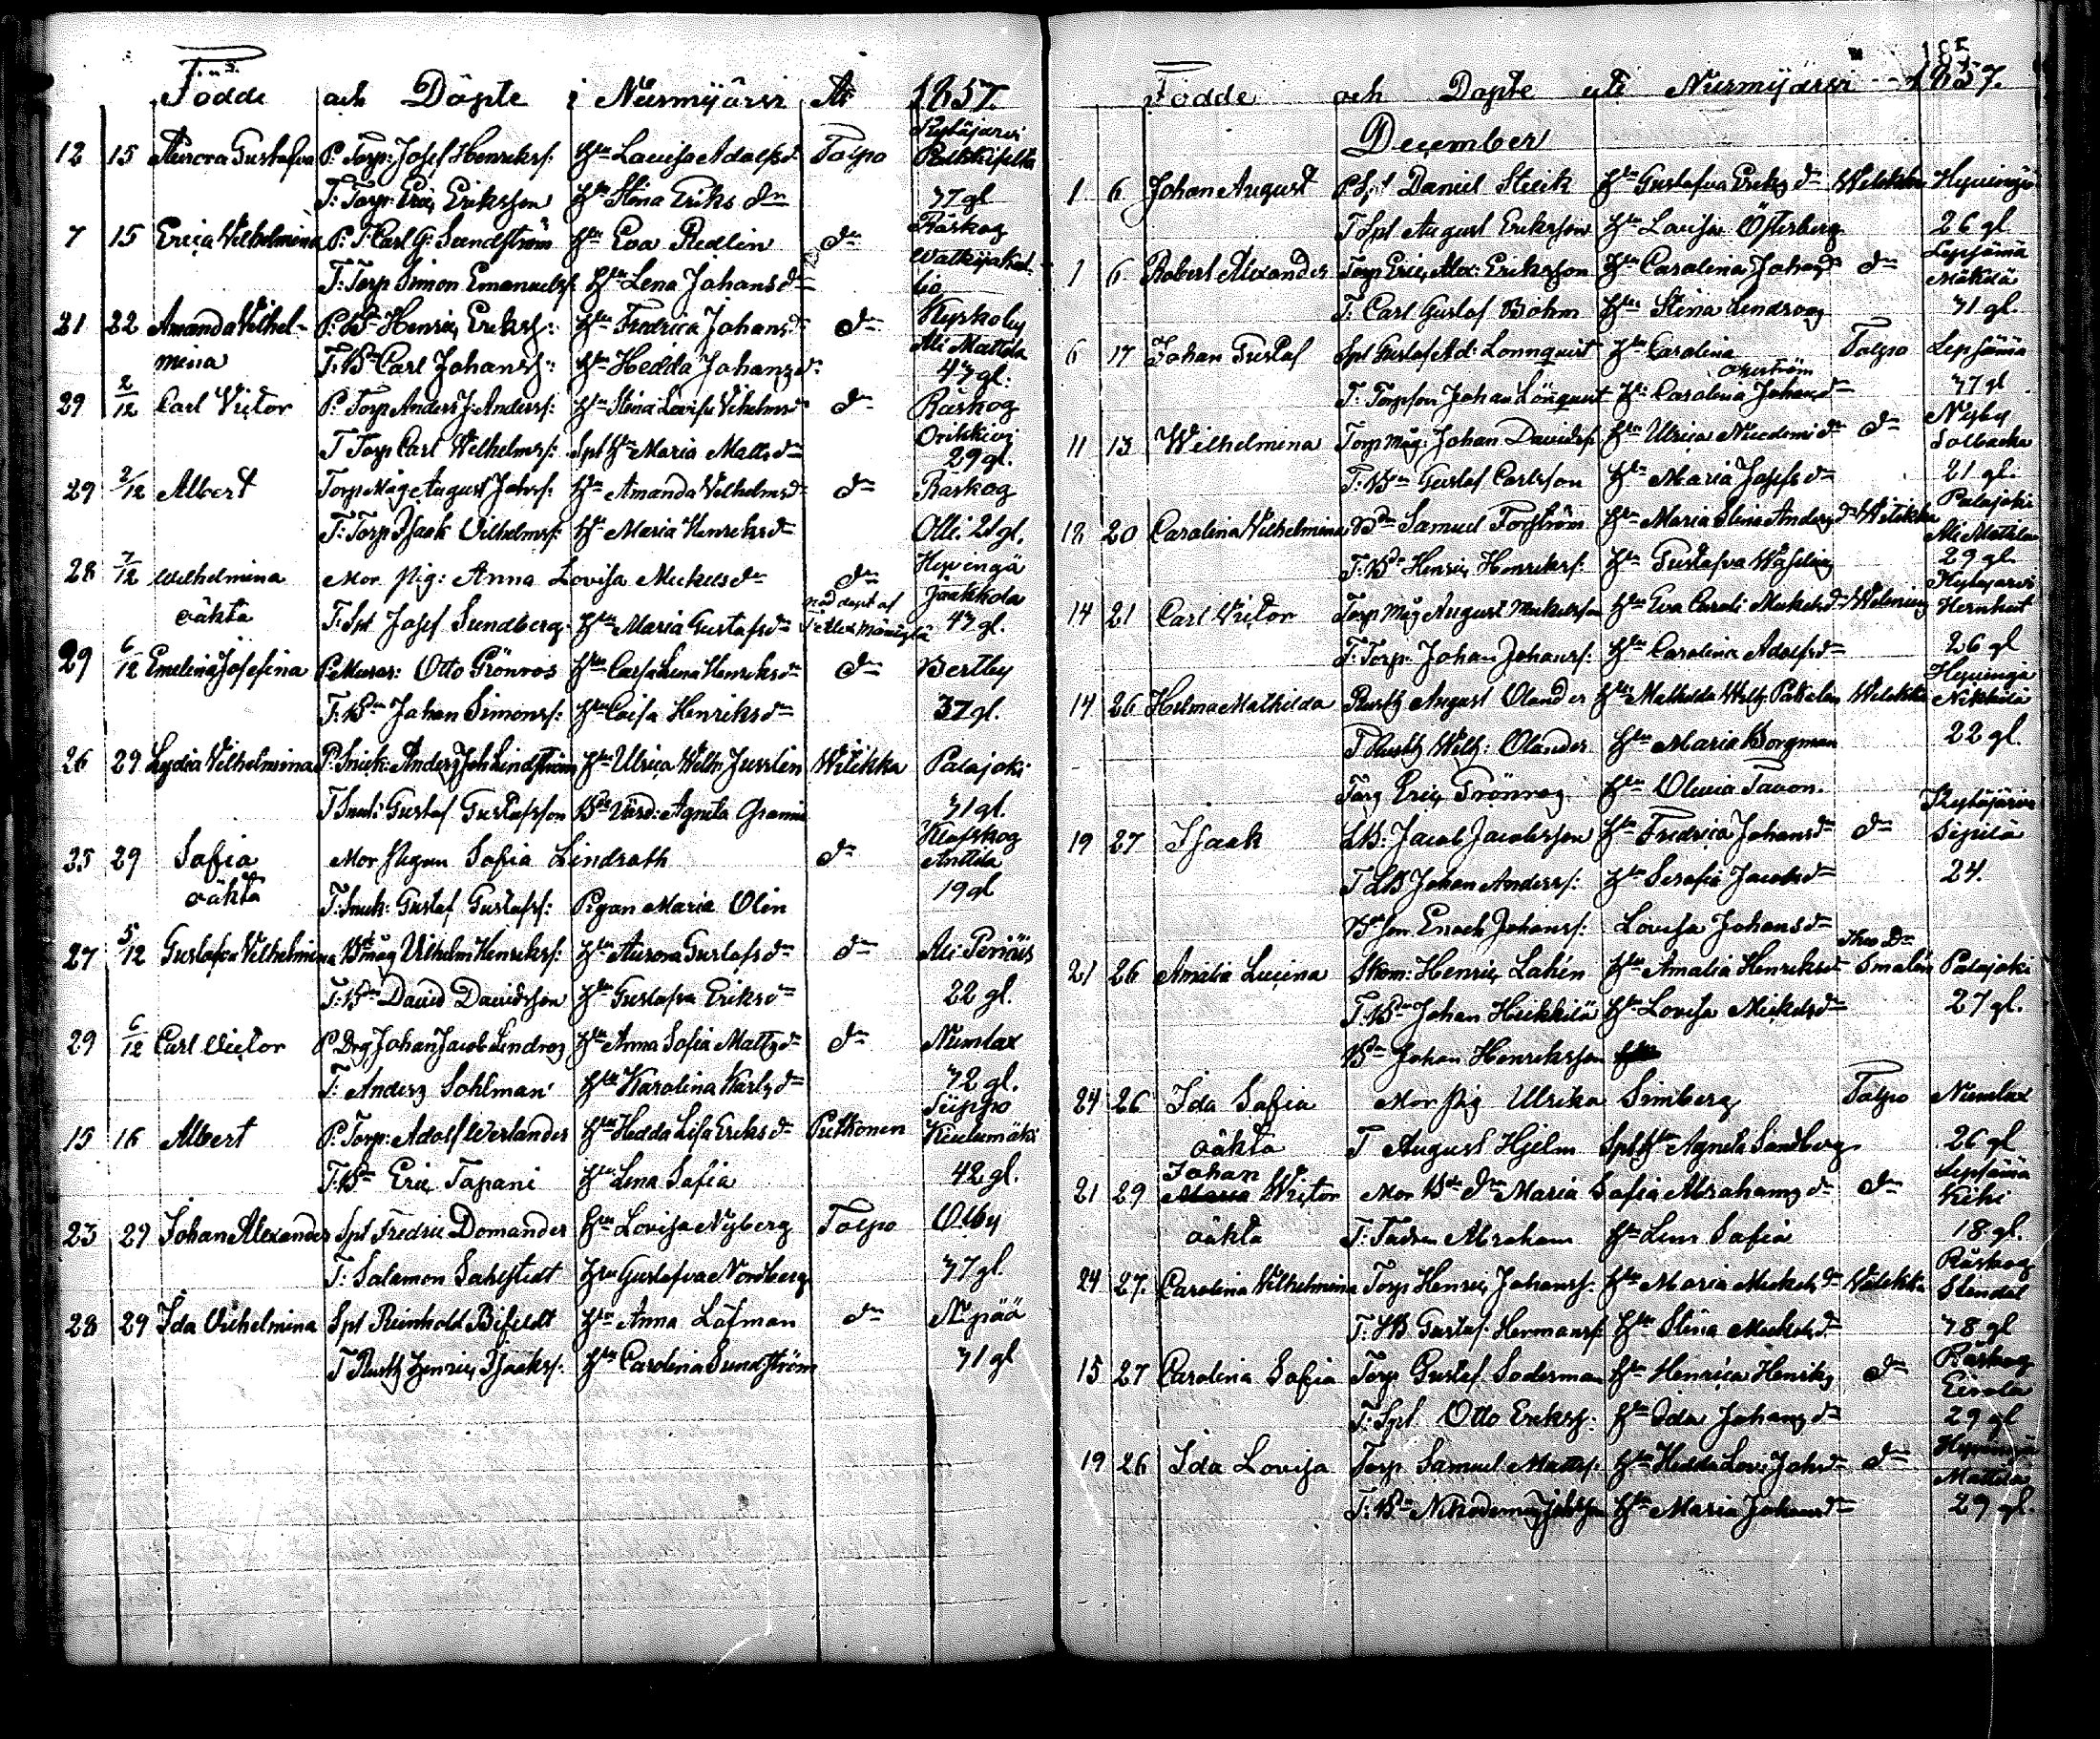 Födde och Döpte i Nurmijärvi År 1857.
12 15 Aurora Gustafva P: Torp: Josef Henrikss: Hu Lovisa Adolfsd: Tolpo Kytäjärvi
T: Torp: Eric Eriksson Hu Stina Eriks dr 37 gl
7 15 Erica Wilhelmina P: T: Carl G: Sundström Hu Eva Redlin dn Råskog
T: Torp Simon Emanuelss: Hu Lena Johansdr
21 22 Amanda Wilhel- P: Bn Henric Erikss: Hu Fredrica Johansdr dn Kyrkoby
mina T: Bn Carl Johanss: Hu Hedda Johansdr Ali Mattila 43 gl.
29 2/12 Carl Victor P: Torp Anders J: Anderss: Hu Stina Lovisa Vilhelmsdr dn Råskog
T Torp Carl Wilhelmss: Spl Hu Maria Mattsdr 29 gl.
29 2/12 Albert Torp Måg August Johss: Hu Amanda Vilhelmsdr dn Råskog
T: Torp Isaak Vilhelmss: Hu Maria Henriksdr Olli. 21 gl.
28 7/12 Wilhelmina Mor Pig: Anna Lovisa Mickelsdr dn Hyvingä
oäkta T: Spl Josef Sundberg. Hu Maria Gustafsdr nöd döpt af Jaakkola 43 gl.
29 6/12 Emelina Josefina P: Murar: Otto Grönros Hu Caisa Lena Henriksdr dn Bertby
T: Bn Johan Simonss: Hu Caisa Henriksdr 37 gl.
26 29 Lydia Vilhelmina P: Snick: Anders Joh Lindström Hu Ulrica Wilh: Juselin Witikka Palajoki
T Snick: Gustaf Gustafsson Agneta 31 gl.
25 29 Sofia Mor Pigan Sofia Lindroth dn Klofskog Anttila
oäkta T: Snick: Gustaf Gustafss: Pigan Maria Olin 19 gl
27 5/12 Gustafva Vilhelmina Bd måg Vilhelm Henrikss: Hu Aurora Gustafsdr dn Ali Perjus
T: Bn David Davidsson Hu Gustafva Eriksdr 22 gl.
29 6/12 Carl Victor P Drg Johan Jacob Lindros Hu Anna Sofia Mattsdr dn Numlax
T: Anders Sohlman Hu Karolina Karlsdr 32 gl.
15 16 Albert P: Torp: Adolf Verlander Hu Hedda Lisa Eriksdr Puthonen Siippo Kiulumäki
T: Bn Eric Tapani Hu Lena Sofia 42 gl.
23 29 Johan Alexander Spl Fredric Domander Hu Lovisa Nyberg Tolpo Olby
T: Salomon Sahlstedt Hu Gustafva Nordberg 37 gl.
28 29 Ida Vilhelmina Spl Reinhold Bifeldt Hu Anna Löfman dn Nipää
T Rusth Henric Isakss: Hu Carolina Sundström 31 gl
185
Födde och Döpte uti Nurmijärvi 1857.
December
1 6 Johan August P: Spl Daniel Hu Gustafva Eriksdr Witikka Hyvingä
T Spl August Eriksson Hu Lovisa Österberg 26 gl.
1 6 Robert Alexander Torp Eric Alex: Eriksson Hu Carolina Johansdr dn Lepsämä
T: Carl Gustaf Böhm Hu Stina Lindroos 31 gl.
6 17 Johan Gustaf Spl Gustaf Ad: Lönnquist Hu Carolina Tolpo Lepsämä
T: Torpson Johan Lönquist Carolina Johansdr 37 gl
11 13 Wilhelmina Torp Måg: Johan Davidss Hu Ulrica Nicodemidr dn Nisby Solbacka
T: Bn Gustaf Carlsson Hu Maria Josefsdr 21 gl.
12 20 Carolina Vilhelmina Bd Samuel Forsström Hu Maria Stina Andersdr Witikka Palajoki Ali Mattila
T: Bd Henric Henrikss: Hu Gustafva 29 gl.
14 21 Carl Victor Torp Måg August Mickelsson Hu Eva Caroli: Mickelsdr Kytäjärvi Hernhut
T: Torp: Johan Johanss: Hu Carolina Adolfsdr 26 gl
14 26 Hilma Mathilda Rusth August Olander Hu Mathilda Witikka Hyvingä Nikkilä
T Rusth Wilh: Olander Hu Maria Borgman 22 gl.
Torp Eric Grönroos Hu Olivia Tavon.
19 27 Isaak LB: Jacob Jacobsson Hu Fredrica Johansdr dn Kytäjärvi Sipilä
T LB Johan Anderss: Hu Serafia Jacobsdr 24.
Bd son Enoch Johanss: Lovisa Johansdr
21 26 Amalia Lucina Skom: Henric Lahén Hu Amalia Henriksdr Smalén Palajoki
T: Bn Johan Heikkilä Hu Lovisa Mickelsdr 27 gl.
Bn Johan Henriksson
24 26 Ida Sofia Mor Pig Ulrika Simberg Tolpo Numlax
oäkta T August Hjelm Spl Hu Agneta Sandberg 26 gl
21 29 Johan Victor Mor Bd dr Maria Sofia Abrahamsdr dn Lepsämä Kihi
oäkta T: Fadren Abraham Hu Lena Sofia 18 gl.
24 27. Carolina Vilhelmina Torp Henric Johanss. Hu Maria Mickelsdr Witikka Råskog Stendal
T: LB Gustaf Hermanss: Hu Stina Mickelsdr 38 gl
15 27 Carolina Sofia Torp Gustaf Söderman Hu Henrica Henriks dn Råskog Eirola
T: Spl Otto Erikss: Hu Ida Johansdr 29 gl
19 26 Ida Lovisa Torp Samuel Matts: Hu Hedda Lov: Johsdr dn Hyvingä Mattila
T: Bn Nikodemus Hu Maria Johansdr 29 gl.